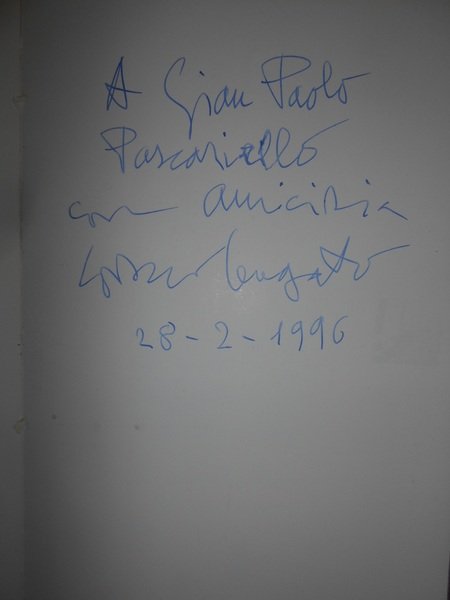 A Gian Paolo
Pascariello
con amicizia
28-2-1996